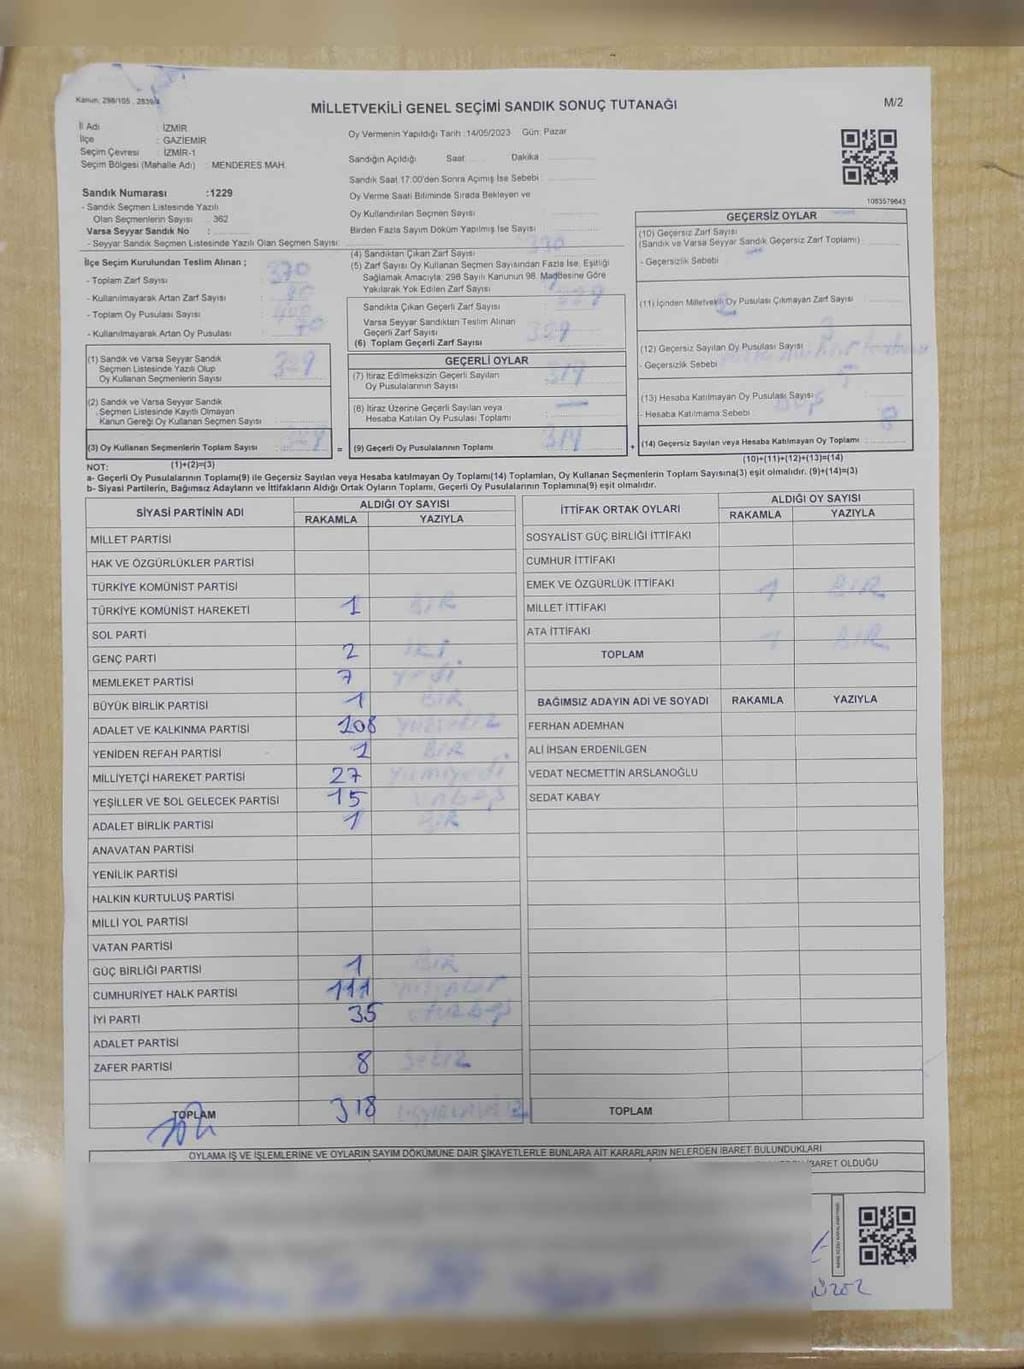 Kanun: 298/105 , 2839/4
MİLLETVEKİLİ GENEL SEÇİMİ SANDIK SONUÇ TUTANAĞI
M/2
İl Adı : İZMİR
İlçe : GAZİEMİR
Seçim Çevresi : İZMİR-1
Seçim Bölgesi (Mahalle Adı) : MENDERES MAH.
Sandık Numarası :1229
- Sandık Seçmen Listesinde Yazılı
Olan Seçmenlerin Sayısı : 362
Varsa Seyyar Sandık No :
- Seyyar Sandık Seçmen Listesinde Yazılı Olan Seçmen Sayısı:
Oy Vermenin Yapıldığı Tarih :14/05/2023 Gün: Pazar
Sandığın Açıldığı Saat Dakika
Sandık Saat 17:00'den Sonra Açımış İse Sebebi :
Oy Verme Saati Bitiminde Sırada Bekleyen ve
Oy Kullandırılan Seçmen Sayısı
Birden Fazla Sayım Döküm Yapılmış İse Sayısı
1083579643
İlçe Seçim Kurulundan Teslim Alınan ;
- Toplam Zarf Sayısı : 370
- Kullanılmayarak Artan Zarf Sayısı :
- Toplam Oy Pusulası Sayısı :
- Kullanılmayarak Artan Oy Pusulası : 70
(1) Sandık ve Varsa Seyyar Sandık
Seçmen Listesinde Yazılı Olup
Oy Kullanan Seçmenlerin Sayısı
(2) Sandık ve Varsa Seyyar Sandık
Seçmen Listesinde Kayıtlı Olmayan
Kanun Gereği Oy Kullanan Seçmen Sayısı
(3) Oy Kullanan Seçmenlerin Toplam Sayısı
=
(4) Sandıktan Çıkan Zarf Sayısı
(5) Zarf Sayısı Oy Kullanan Seçmen Sayısından Fazla İse, Eşitliği
Sağlamak Amacıyla; 298 Sayılı Kanunun 98. Maddesine Göre
Yakılarak Yok Edilen Zarf Sayısı
Sandıkta Çıkan Geçerli Zarf Sayısı
Varsa Seyyar Sandıktan Teslim Alınan
Geçerli Zarf Sayısı
(6) Toplam Geçerli Zarf Sayısı
GEÇERLİ OYLAR
(7) İtiraz Edilmeksizin Geçerli Sayılan
Oy Pusulalarının Sayısı
(8) İtiraz Üzerine Geçerli Sayılan veya
Hesaba Katılan Oy Pusulası Toplamı
(9) Geçerli Oy Pusulalarının Toplamı
+
GEÇERSİZ OYLAR
(10) Geçersiz Zarf Sayısı
(Sandık ve Varsa Seyyar Sandık Geçersiz Zarf Toplamı)
- Geçersizlik Sebebi
(11) İçinden Milletvekili Oy Pusulası Çıkmayan Zarf Sayısı
(12) Geçersiz Sayılan Oy Pusulası Sayısı
- Geçersizlik Sebebi
(13) Hesaba Katılmayan Oy Pusulası Sayısı
- Hesaba Katılmama Sebebi
(14) Geçersiz Sayılan veya Hesaba Katılmayan Oy Toplamı : 8
NOT: (1)+(2)=(3)
(10)+(11)+(12)+(13)=(14)
a- Geçerli Oy Pusulalarının Toplamı(9) ile Geçersiz Sayılan veya Hesaba katılmayan Oy Toplamı(14) Toplamları, Oy Kullanan Seçmenlerin Toplam Sayısına(3) eşit olmalıdır. (9)+(14)=(3)
b- Siyasi Partilerin, Bağımsız Adayların ve İttifakların Aldığı Ortak Oyların Toplamı, Geçerli Oy Pusulalarının Toplamına(9) eşit olmalıdır.
SİYASİ PARTİNİN ADI ALDIĞI OY SAYISI
RAKAMLA YAZIYLA
MİLLET PARTİSİ
HAK VE ÖZGÜRLÜKLER PARTİSİ
TÜRKİYE KOMÜNİST PARTİSİ
TÜRKİYE KOMÜNİST HAREKETİ 1 BİR
SOL PARTİ
GENÇ PARTİ 2 iki
MEMLEKET PARTİSİ 7 yedi
BÜYÜK BİRLİK PARTİSİ 1 BİR
ADALET VE KALKINMA PARTİSİ 108 yüzsekiz
YENİDEN REFAH PARTİSİ 1 BİR
MİLLİYETÇİ HAREKET PARTİSİ 27 yirmiyedi
YEŞİLLER VE SOL GELECEK PARTİSİ 15 onbeş
ADALET BİRLİK PARTİSİ 1 BİR
ANAVATAN PARTİSİ
YENİLİK PARTİSİ
HALKIN KURTULUŞ PARTİSİ
MİLLİ YOL PARTİSİ
VATAN PARTİSİ
GÜÇ BİRLİĞİ PARTİSİ 1 BİR
CUMHURİYET HALK PARTİSİ 111
İYİ PARTİ 35 otuzbeş
ADALET PARTİSİ
ZAFER PARTİSİ 8 Sekiz
TOPLAM 318
İTTİFAK ORTAK OYLARI ALDIĞI OY SAYISI
RAKAMLA YAZIYLA
SOSYALİST GÜÇ BİRLİĞİ İTTİFAKI
CUMHUR İTTİFAKI
EMEK VE ÖZGÜRLÜK İTTİFAKI 1 BİR
MİLLET İTTİFAKI
ATA İTTİFAKI 1 BİR
TOPLAM
BAĞIMSIZ ADAYIN ADI VE SOYADI RAKAMLA YAZIYLA
FERHAN ADEMHAN
ALİ İHSAN ERDENİLGEN
VEDAT NECMETTİN ARSLANOĞLU
SEDAT KABAY
TOPLAM
OYLAMA İŞ VE İŞLEMLERİNE VE OYLARIN SAYIM DÖKÜMÜNE DAİR ŞİKAYETLERLE BUNLARA AİT KARARLARIN NELERDEN İBARET BULUNDUKLARI
BARET OLDUĞU